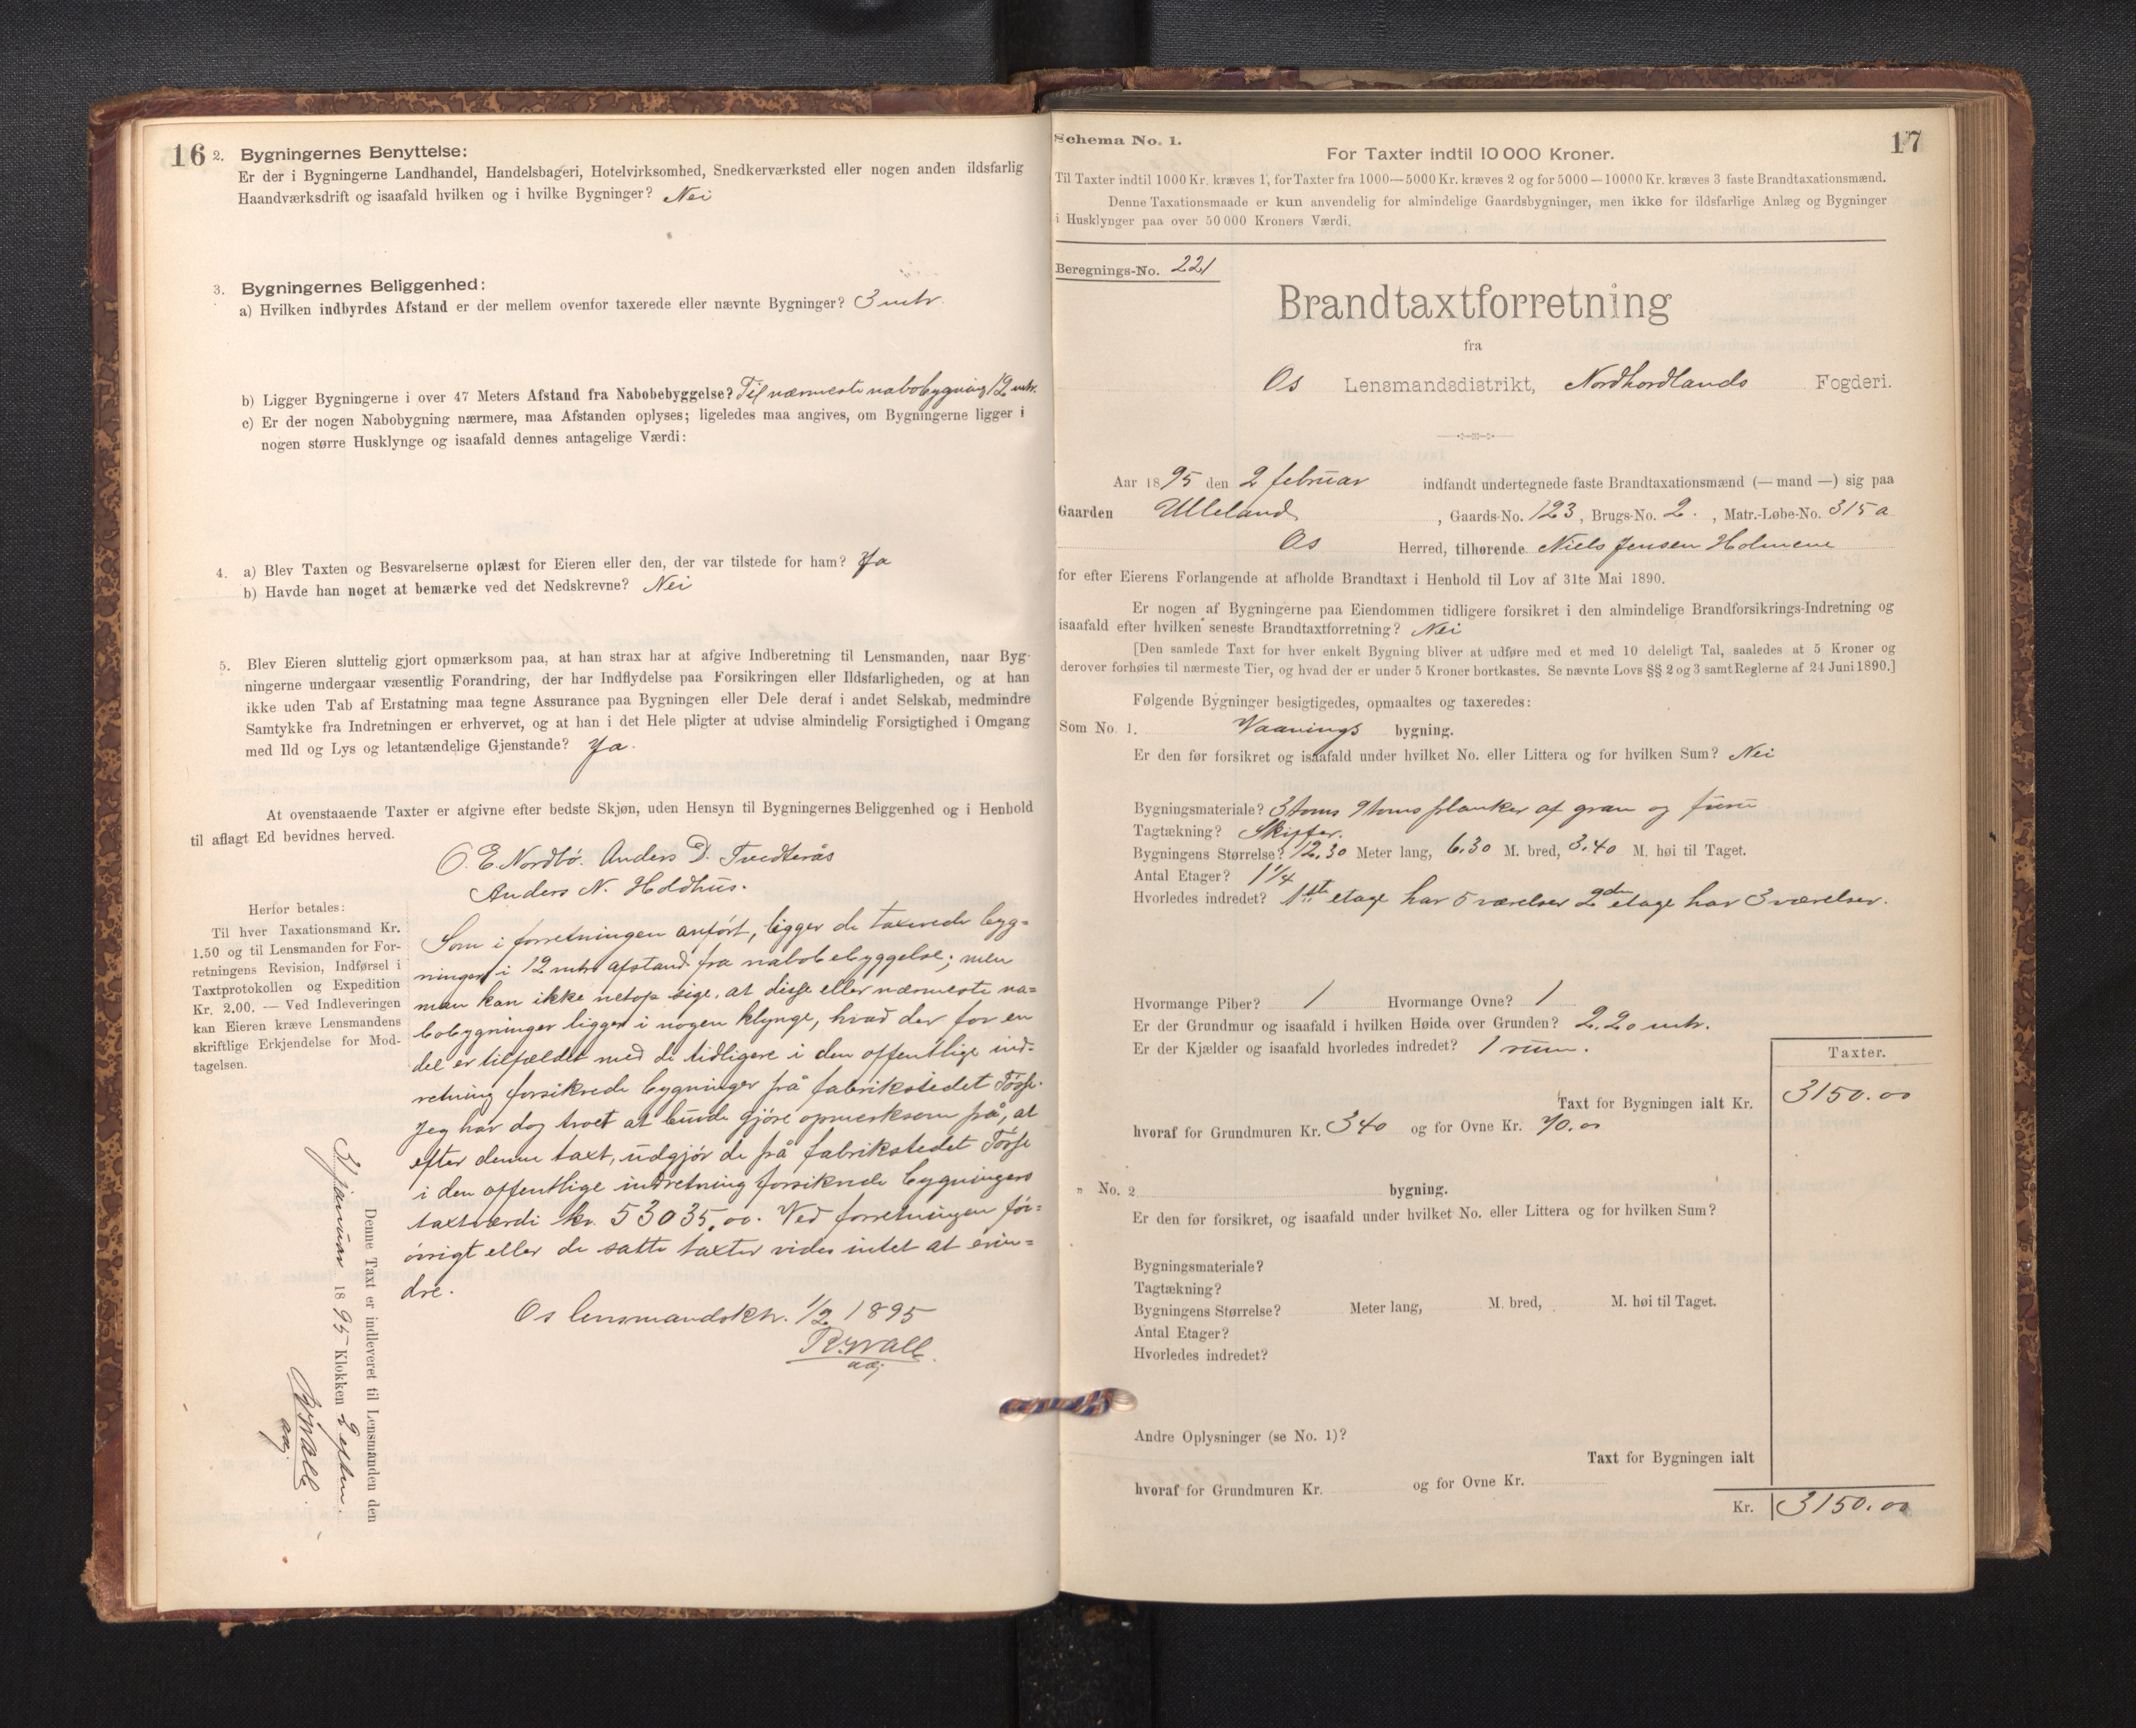 16
2. Bygningernes Benyttelse:
Er der i Bygningerne Landhandel, Handelsbageri, Hotelvirksomhed, Snedkerværksted eller nogen anden ildsfarlig
Haandværksdrift og isaafald hvilken og i hvilke Bygninger? Nei
3. Bygningernes Beliggenhed:
a) Hvilken indbyrdes Afstand er der mellem ovenfor taxerede eller nævnte Bygninger? 3 mtr.
b) Ligger Bygningerne i over 47 Meters Afstand fra Nabobebyggelse? Til nærmeste nabobygning 12 mtr.
c) Er der nogen Nabobygning nærmere, maa Afstanden oplyses; ligeledes maa angives, om Bygningerne ligger i
nogen større Husklynge og isaafald dennes antagelige Værdi:
4. a) Blev Taxten og Besvarelserne oplæst for Eieren eller den, der var tilstede for ham? Ja
b) Havde han noget at bemærke ved det Nedskrevne? Nei
5. Blev Eieren sluttelig gjort opmærksom paa, at han strax har at afgive Indberetning til Lensmanden, naar Byg-
ningerne undergaar væsentlig Forandring, der har Indflydelse paa Forsikringen eller Ildsfarligheden, og at han
ikke uden Tab af Erstatning maa tegne Assurance paa Bygningen eller Dele deraf i andet Selskab, medmindre
Samtykke fra Indretningen er erhvervet, og at han i det Hele pligter at udvise almindelig Forsigtighed i Omgang
med Ild og Lys og letantændelige Gjenstande? Ja.
At ovenstaaende Taxter er afgivne efter bedste Skjøn, uden Hensyn til Bygningernes Beliggenhed og i Henhold
til aflagt Ed bevidnes herved.
O. E. Nordbö. Anders D. Tvedterås
Anders N. Holdhus.
Herfor betales:
Til hver Taxationsmand Kr.
1.50 og til Lensmanden for For-
retningens Revision, Indførsel i
Taxtprotokollen og Expedition
Kr. 2.00. — Ved Indleveringen
kan Eieren kræve Lensmandens
skriftlige Erkjendelse for Mod-
tagelsen.
Som i forretningen anført, ligger de taxerede byg-
ninger i 12 mtrs afstand fra nabobebyggelse; men
man kan ikke netop sige, at disse eller nærmeste na-
bobygninger ligger i nogen klynge, hvad der for en
del er tilfældet med de tidligere i den offentlige ind-
retning forsikrede bygninger på fabrikstedet Tösse.
Jeg har dog troet at burde gjöre opmerksom på, at
efter denne taxt, udgjør de på fabrikstedet Tösse
i den offentlige indretning forsikrede bygningers
taxtværdi kr. 53035,00. Ved forretningen for-
övrigt eller de satte taxter vides intet at erin-
dre.
Os lensmandsktr. 1/2 1895
Denne Taxt er indleveret til Lensmanden den
31 januar 1895 Klokken 2 eftm.
17
Schema No. 1.
For Taxter indtil 10 000 Kroner.
Til Taxter indtil 1000 Kr. kræves 1, for Taxter fra 1000—5000 Kr. kræves 2 og for 5000—10000 Kr. kræves 3 faste Brandtaxationsmænd.
Denne Taxationsmaade er kun anvendelig for almindelige Gaardsbygninger, men ikke for ildsfarlige Anlæg og Bygninger
i Husklynger paa over 50 000 Kroners Værdi.
Beregnings-No. 221
Brandtaxtforretning
fra
Os Lensmandsdistrikt, Nordhordlands Fogderi.
Aar 1895 den 2 februar indfandt undertegnede faste Brandtaxationsmænd (— mand —) sig paa
Gaarden Ulleland, Gaards-No. 123, Brugs-No. 2., Matr.-Løbe-No. 315 a
Os Herred, tilhørende Niels Jensen Holmene
for efter Eierens Forlangende at afholde Brandtaxt i Henhold til Lov af 31te Mai 1890.
Er nogen af Bygningerne paa Eiendommen tidligere forsikret i den almindelige Brandforsikrings-Indretning og
isaafald efter hvilken seneste Brandtaxtforretning? Nei
[Den samlede Taxt for hver enkelt Bygning bliver at udføre med et med 10 deleligt Tal, saaledes at 5 Kroner og
derover forhøies til nærmeste Tier, og hvad der er under 5 Kroner bortkastes. Se nævnte Lovs §§ 2 og 3 samt Reglerne af 24 Juni 1890.]
Følgende Bygninger besigtigedes, opmaaltes og taxeredes:
Som No. 1. Vaanings bygning.
Er den før forsikret og isaafald under hvilket No. eller Littera og for hvilken Sum? Nei
Bygningsmateriale? 3 toms 9 toms planker af gran og furu
Tagtækning? Skiffer.
Bygningens Størrelse? 12.30 Meter lang, 6.30 M. bred, 3.40 M. høi til Taget.
Antal Etager? 1 1/4
Hvorledes indredet? 1ste etage har 5 værelser 2den etage har 3 værelser.
Hvormange Piber? 1 Hvormange Ovne? 1
Er der Grundmur og isaafald i hvilken Høide over Grunden? 2.20 mtr.
Er der Kjælder og isaafald hvorledes indredet? 1 rum.
Taxter.
Taxt for Bygningen ialt Kr. 3150.00
hvoraf for Grundmuren Kr. 340 og for Ovne Kr. 70.00
" No. 2 bygning.
Er den før forsikret, og isaafald under hvilket No. eller Littera og for hvilken Sum?
Bygningsmateriale?
Tagtækning?
Bygningens Størrelse? Meter lang, M. bred, M. høi til Taget.
Antal Etager?
Hvorledes indredet?
Andre Oplysninger (se No. 1)?
Taxt for Bygningen ialt
hvoraf for Grundmuren Kr. og for Ovne Kr.
Kr. 3150.00